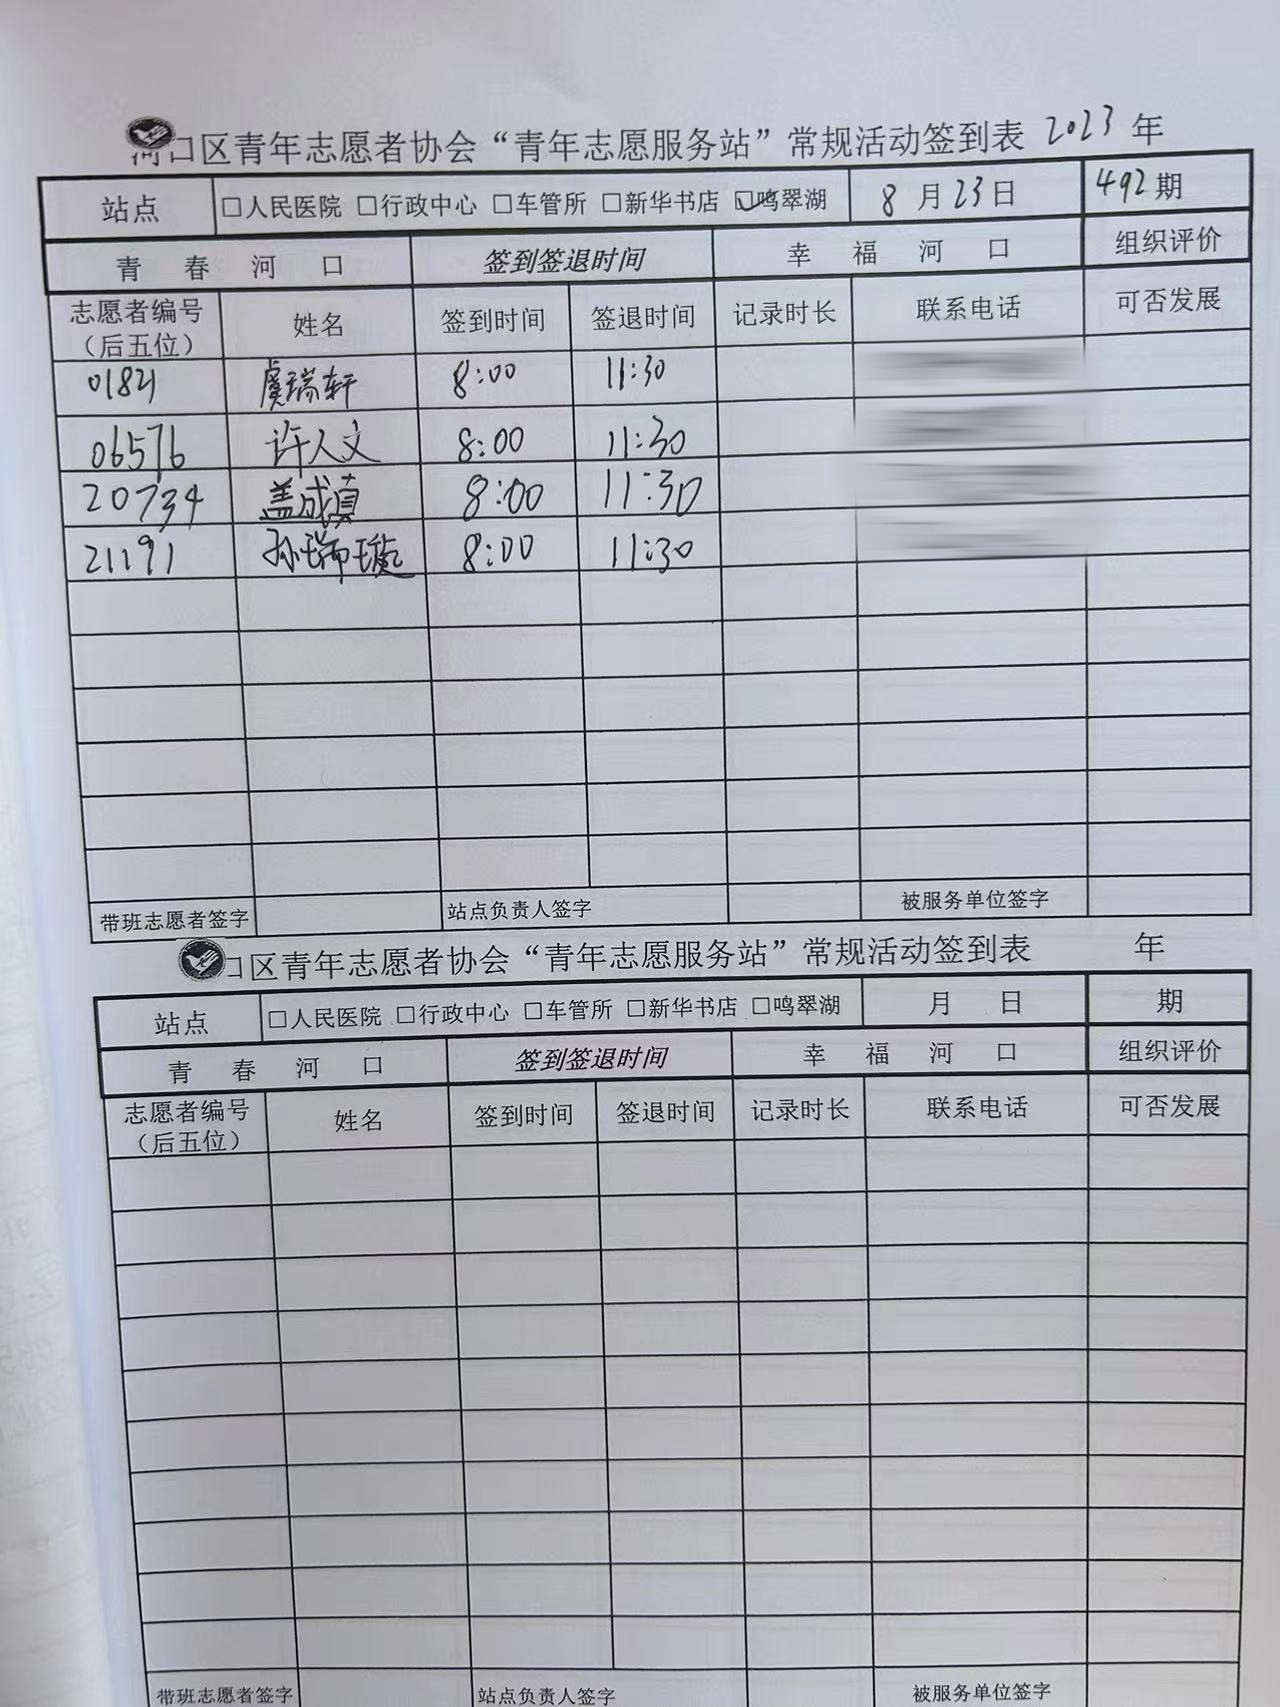 河口区青年志愿者协会“青年志愿服务站”常规活动签到表 2023 年
站点 □人民医院 □行政中心 □车管所 □新华书店 ☑鸣翠湖 8 月 23 日 492 期
青 春 河 口 签到签退时间 幸 福 河 口 组织评价
志愿者编号（后五位） 姓名 签到时间 签退时间 记录时长 联系电话 可否发展
01821 虞瑞轩 8:00 11:30
06576 许人文 8:00 11:30
20734 盖成真 8:00 11:30
21191 孙瑞璇 8:00 11:30
带班志愿者签字 站点负责人签字 被服务单位签字
口区青年志愿者协会“青年志愿服务站”常规活动签到表 年
站点 □人民医院 □行政中心 □车管所 □新华书店 □鸣翠湖 月 日 期
青 春 河 口 签到签退时间 幸 福 河 口 组织评价
志愿者编号（后五位） 姓名 签到时间 签退时间 记录时长 联系电话 可否发展
带班志愿者签字 站点负责人签字 被服务单位签字